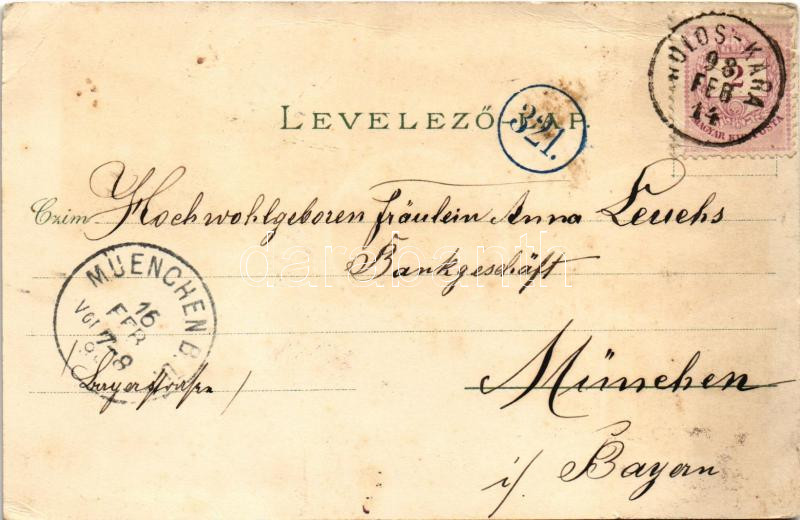 LEVELEZŐ-LAP.
321.
HULOS-KARA
98
FEB
14
2
MAGYAR KIR. POSTA
Czim Hochwohlgeboren fräulein Anna Leuchs
Bankgeschäft
darabanth
MUENCHEN B.
16
FEB
Vor 7-8
/Bayerstrasse/
München
i/ Bayern